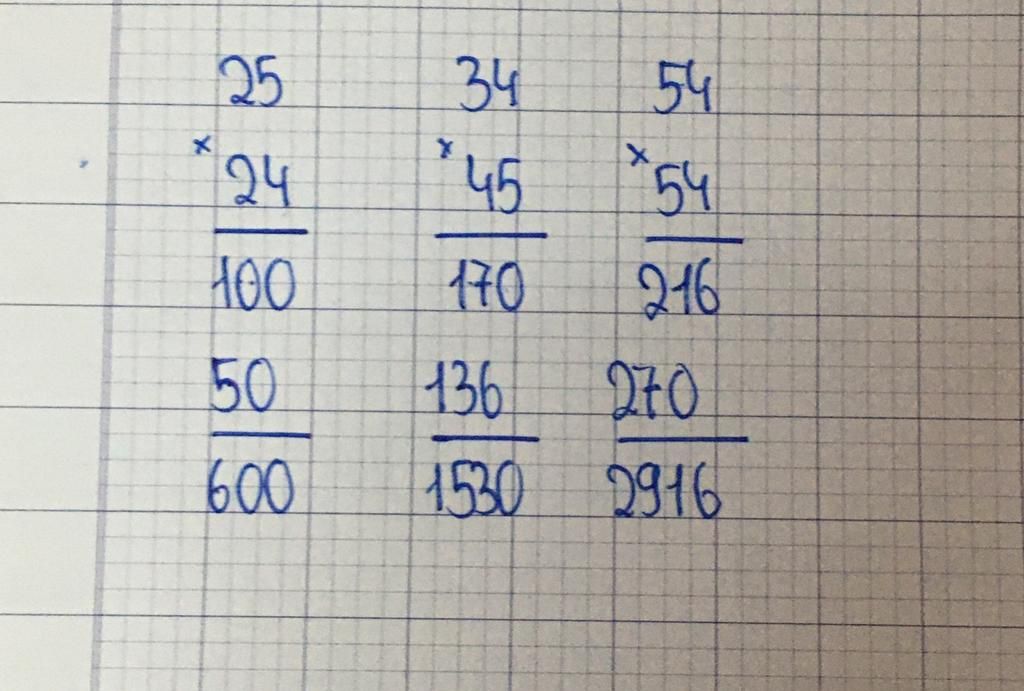 25 34 54
x x x
24 45 54
100 170 216
50 136 270
600 1530 2916